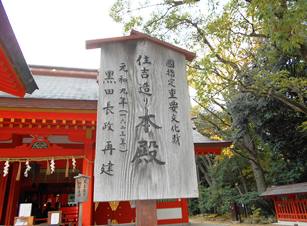 国指定重要文化財
住吉造り本殿
元和九年(一六二三年)
黒田長政再建